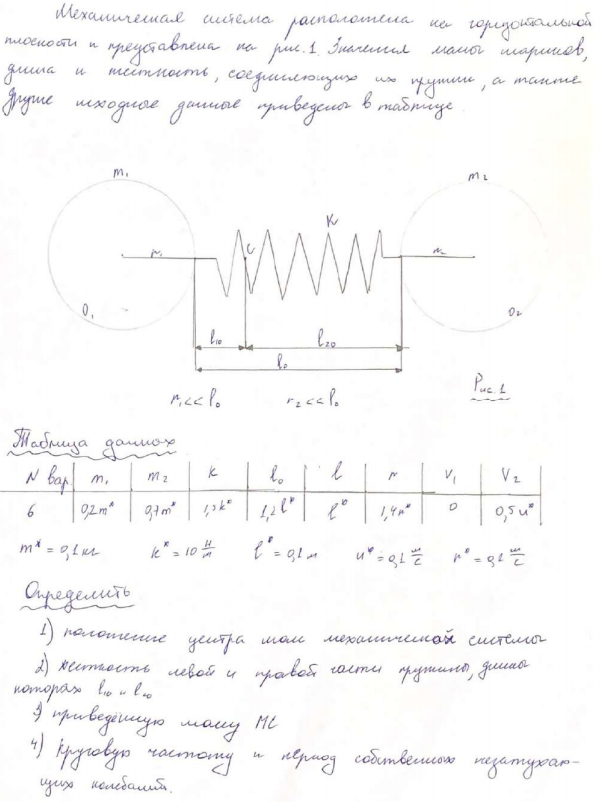 Механическая система расположена на горизонтальной
плоскости и представлена на рис.1. Значения массы шариков,
длина и жёсткость, соединяющих их пружин, а также
другие исходные данные приведены в таблице.
m₁
m₂
K
C
r₁
r₂
O₁
O₂
l₁₀
l₂₀
l₀
r₁<<l₀ r₂<<l₀
Рис.1
Таблица данных
N вар. m₁ m₂ k l₀ l r V₁ V₂
6 0,2m* 0,7m* 1,3k* 1,2l* l* 1,4r* 0 0,5u*
m* = 0,1 кг k* = 10 Н/м l* = 0,1 м u* = 0,1 м/с r* = 0,1 м/с
Определить
1) положение центра масс механической системы
2) жесткость левой и правой части пружины, длины
которых l₁₀ и l₂₀
3) приведённую массу МС
4) Круговую частоту и период собственных незатухаю-
щих колебаний.